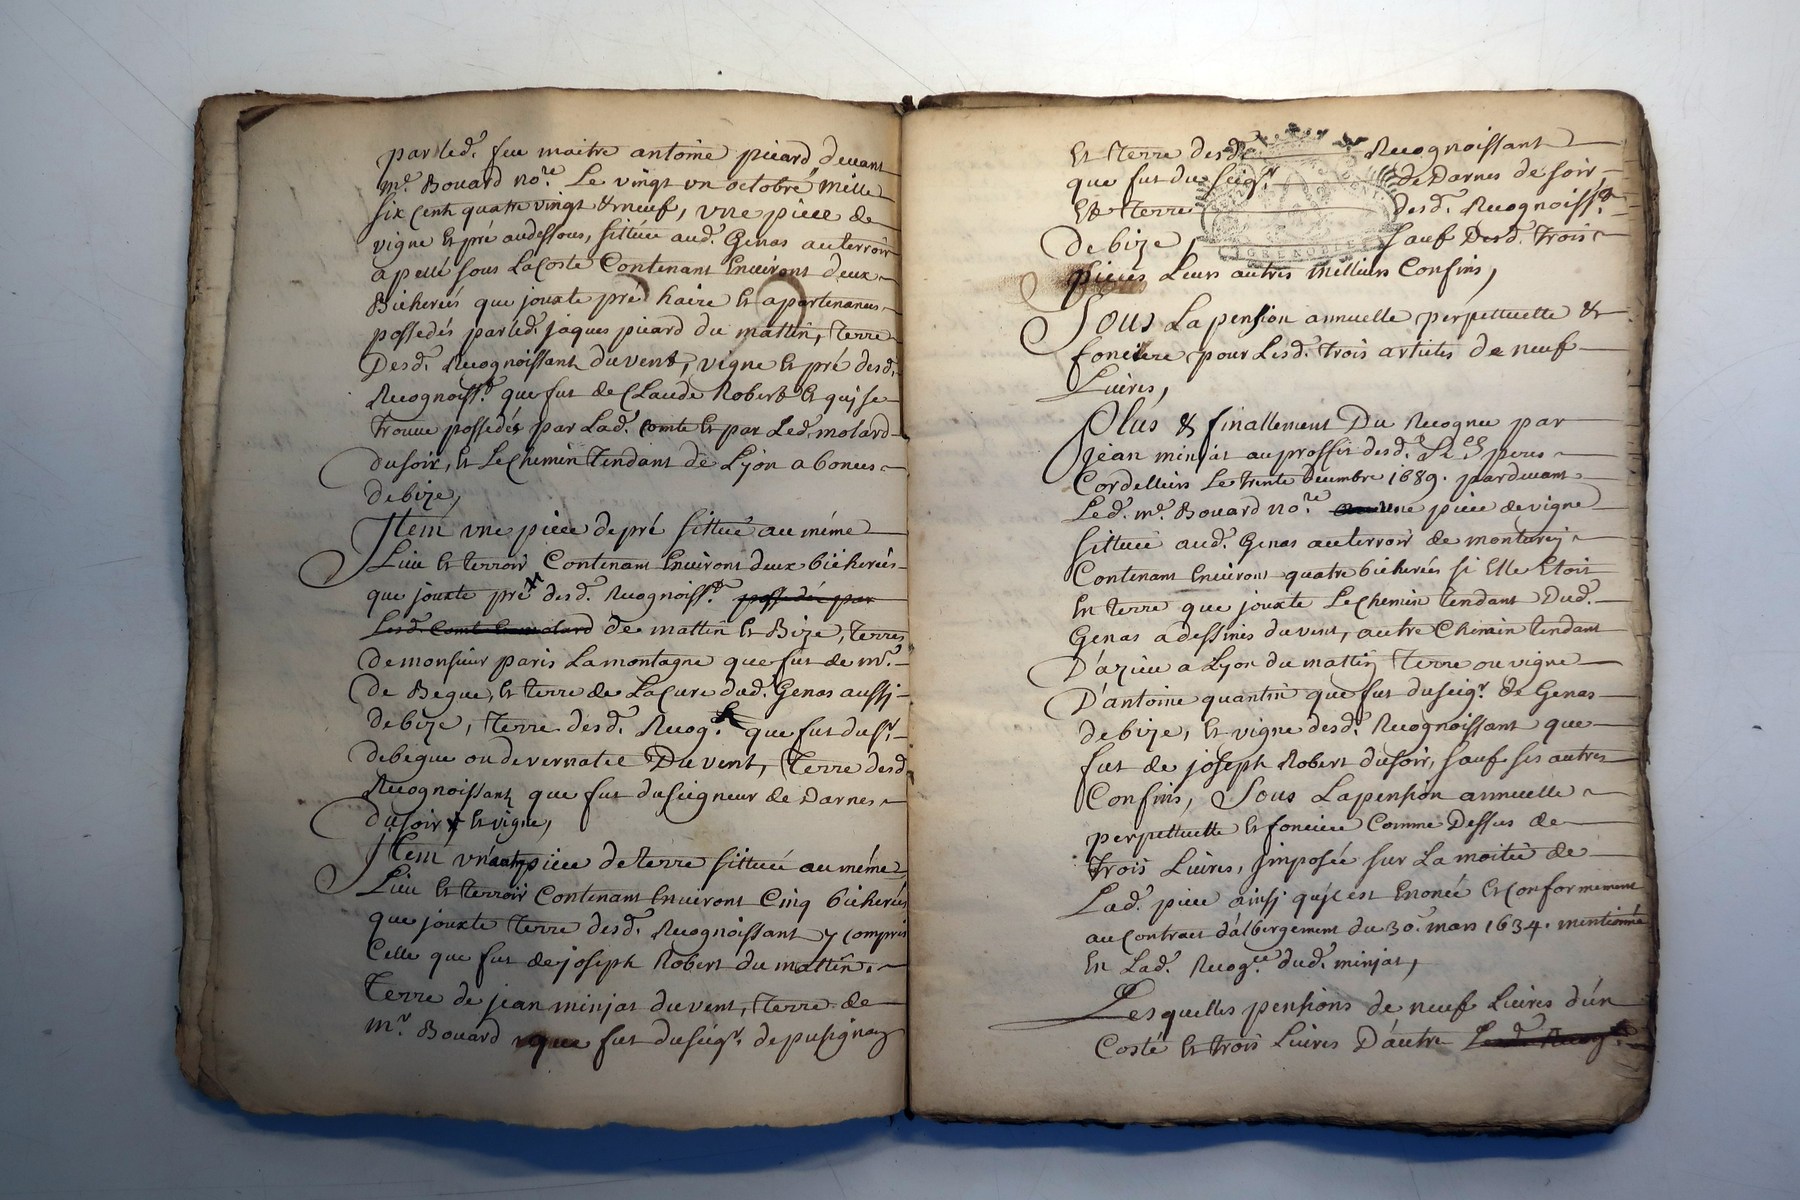 par led. feu maitre antoine picard devant
mr. Bouard nore. Le vingt un octobre mille
six cent quatre vingt & neuf, une piece de
vigne et pré audessous, sittuée aud. Genas au terroir
apellé sous La Coste Contenant Environt deux
Bicherées que jouxte pré haire et apartenances
possedés par led. jaques picard du mattin, terre
Desd. Recognoissant du vent, vigne et pré desd.
Recognoisst. que fut de Claude Robert et qui se
trouve possedés par Lad. comte et par Led. molard
du soir, et Le Chemin tendant de Lyon a bonces
de bize,
Item une piece de pré sittué au méme
Lieu et terroir Contenant Environt deux bicherées
que jouxte pré desd. Recognoisst. possedée par
Lesd. Comte et molard de mattin et Bize, terres
de monsieur paris Lamontagne que fut de mr.
de Begue, et terre de La Cure dud. Genas aussj
de bize, terre desd. Recogt. que fut du sr.
de begue ou de vernatel Du vent, terre desd
Recognoissant que fut du seigneur de Darnes
du soir et vigne,
Item un autre piece de terre sittuée au méme
Lieu et terroir Contenant Environt Cinq bicherées
que jouxte terre desd. Recognoissant y compris
Celle que fut de joseph Robert du mattin,
Terre de jean minjat du vent, terre de
mr. Bouard que fut du seigr. de pusignaz
Et terre desd. Recognoissant
que fut du seigr. de Darnes de soir,
Et terre desd. Recognoisst.
de bize, sauf Desd. trois
pieces Leurs autres meilleurs Confins,
Sous La pension annuelle perpettuelle &
fonciere pour Lesd. trois articles de neuf
Livres,
Plus & finallement Du Recognu par
jean minjat au proffit desd. Rds. peres
Cordelliers Le trente decembre 1689. pardevant
Led. mr. Bouard nore. une piece de vigne
sittuée aud. Genas au terroir de monturej
Contenant Environt quatre bicherées si Elle Etoit
En terre que jouxte Le Chemin tendant Dud.
Genas a dessines du vent, autre Chemin tendant
D'azieu a Lyon du mattin terre ou vigne
D'antoine quantin que fut du seigr. de Genas
de bize, et vigne desd. Recognoissant que
fut de joseph Robert du soir, sauf ses autres
Confins, Sous La pension annuelle
perpettuelle et fonciere Comme Dessus de
trois Livres, jmposée sur La moitié de
Lad. piece ainsj qu'il est Enoncé et conformement
au Contract d'albergement du 30. mars 1634. mentionné
En Lad. Recogce. dud. minjat,
Lesquelles pensions de neuf Livres d'un
Costé et trois Livres D'autre Lesd. Recogt.
GRENOBLE